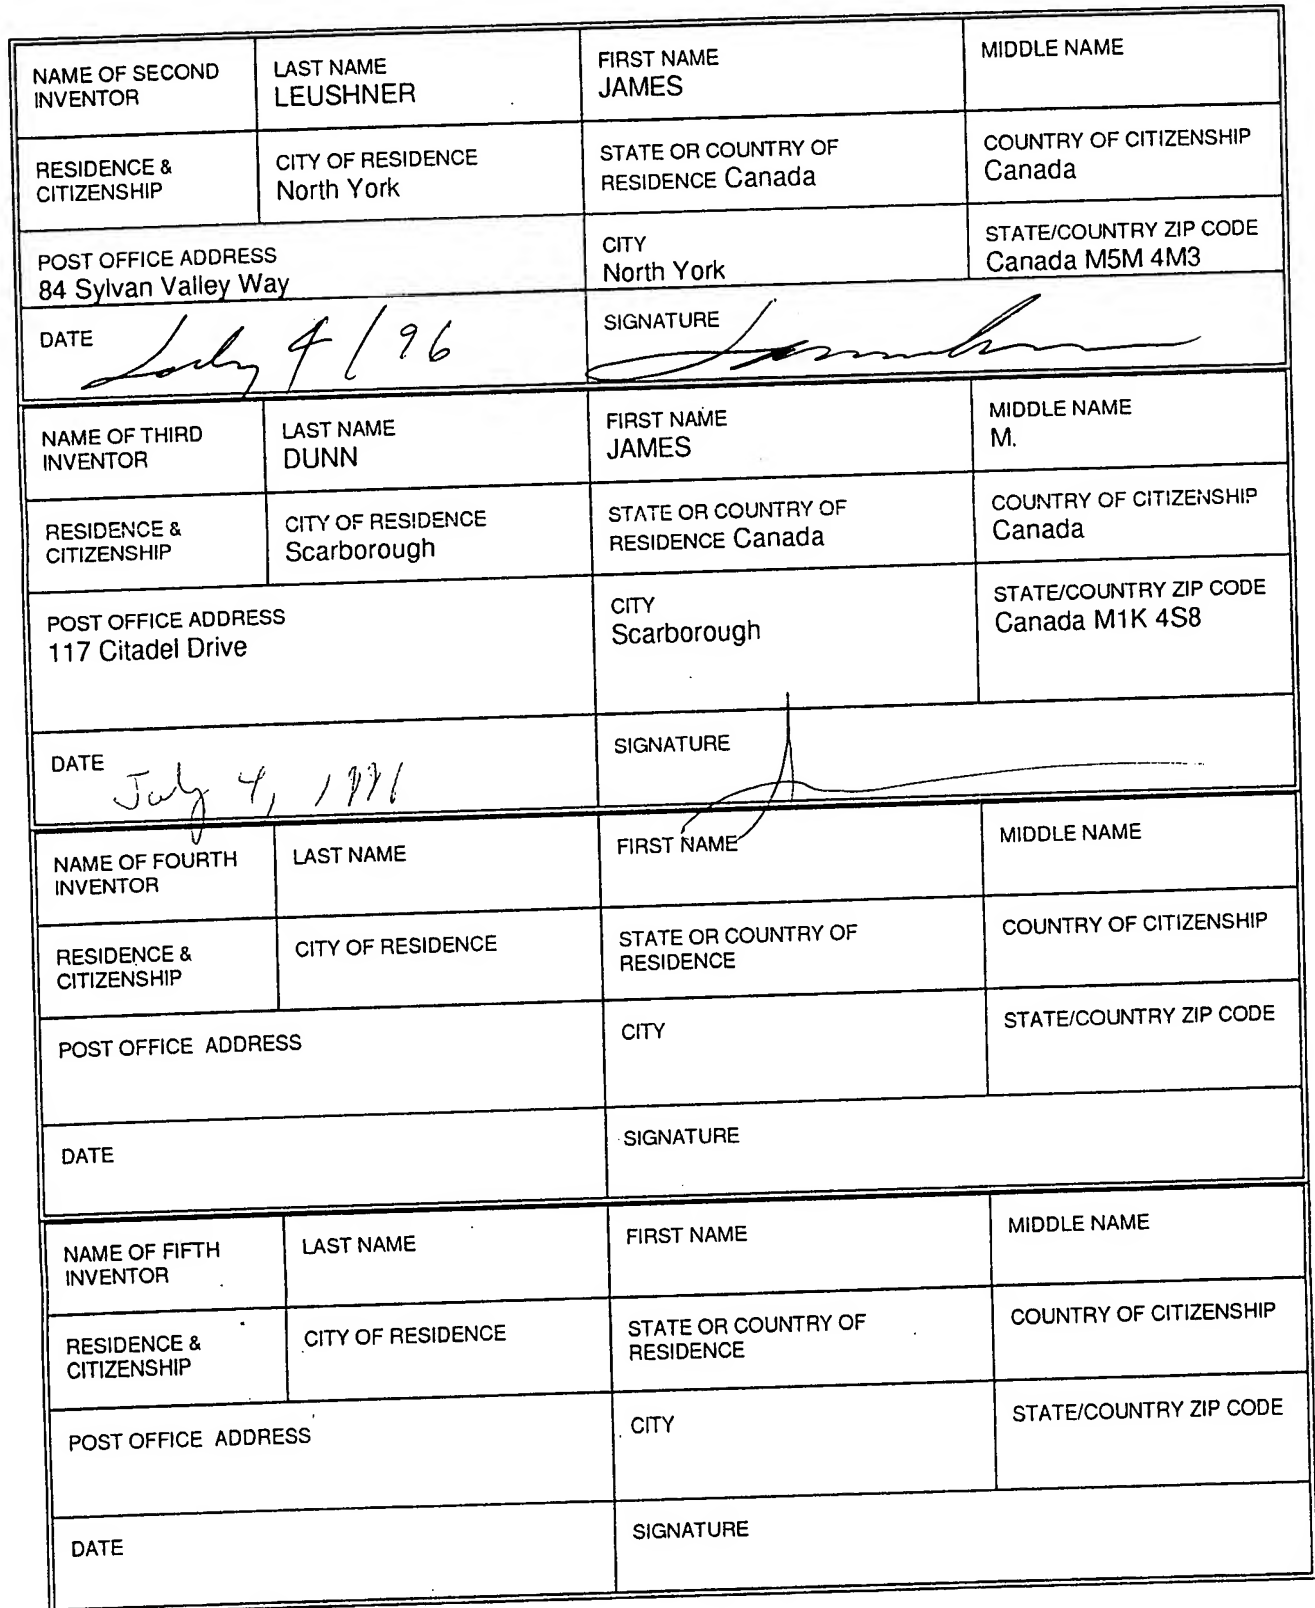 NAME OF SECOND INVENTOR
LAST NAME
LEUSHNER
FIRST NAME
JAMES
MIDDLE NAME
RESIDENCE & CITIZENSHIP
CITY OF RESIDENCE
North York
STATE OR COUNTRY OF
RESIDENCE Canada
COUNTRY OF CITIZENSHIP
Canada
POST OFFICE ADDRESS
84 Sylvan Valley Way
CITY
North York
STATE/COUNTRY ZIP CODE
Canada M5M 4M3
DATE July 4/96
SIGNATURE
NAME OF THIRD
INVENTOR
LAST NAME
DUNN
FIRST NAME
JAMES
MIDDLE NAME
M.
RESIDENCE &
CITIZENSHIP
CITY OF RESIDENCE
Scarborough
STATE OR COUNTRY OF
RESIDENCE Canada
COUNTRY OF CITIZENSHIP
Canada
POST OFFICE ADDRESS
117 Citadel Drive
CITY
Scarborough
STATE/COUNTRY ZIP CODE
Canada M1K 4S8
DATE July 4,
SIGNATURE
NAME OF FOURTH
INVENTOR
LAST NAME
FIRST NAME
MIDDLE NAME
RESIDENCE &
CITIZENSHIP
CITY OF RESIDENCE
STATE OR COUNTRY OF
RESIDENCE
COUNTRY OF CITIZENSHIP
POST OFFICE ADDRESS
CITY
STATE/COUNTRY ZIP CODE
DATE
SIGNATURE
NAME OF FIFTH
INVENTOR
LAST NAME
FIRST NAME
MIDDLE NAME
RESIDENCE &
CITIZENSHIP
CITY OF RESIDENCE
STATE OR COUNTRY OF
RESIDENCE
COUNTRY OF CITIZENSHIP
POST OFFICE ADDRESS
CITY
STATE/COUNTRY ZIP CODE
DATE
SIGNATURE